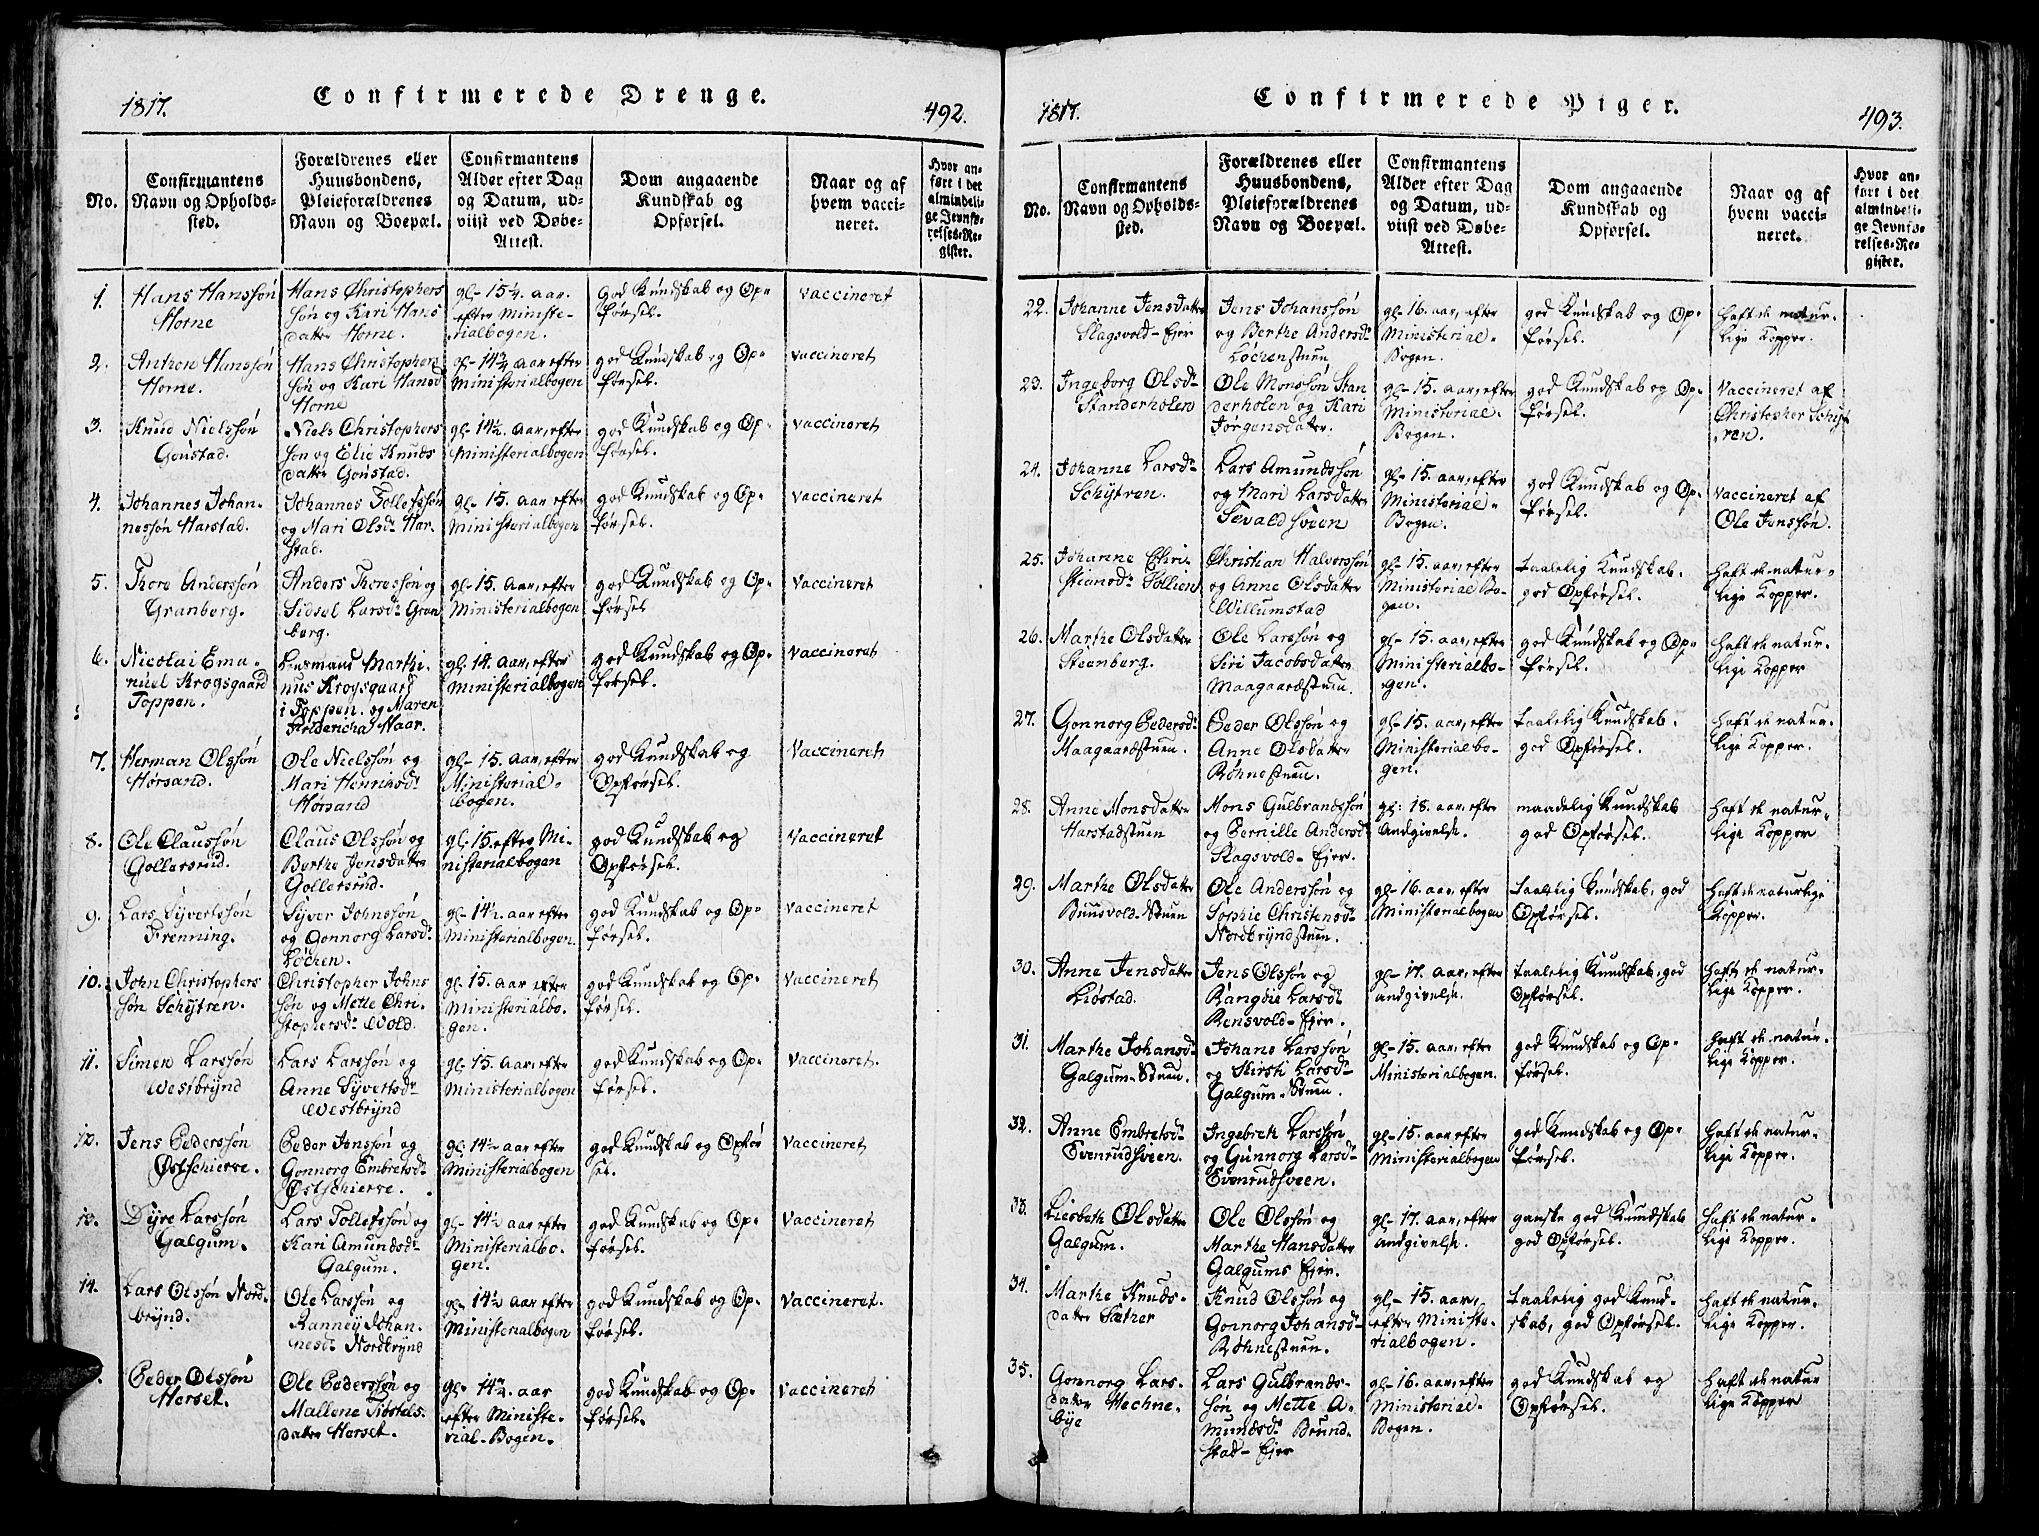 1817.
Confirmerede Drenge.
492.
No.
Confirmantens
Navn og Opholds-
sted.
Forældrenes eller
Huusbondens,
Pleieforældrenes
Navn og Boepæl.
Confirmantens
Alder efter Dag
og Datum, ud-
viist ved Døbe-
Attest.
Dom angaaende
Kundskab og
Opførsel.
Naar og af
hvem vacci-
neret.
Hvor an-
ført i det
almindeli-
ge Jevnfø-
relses-Re-
gister.
1.
Hans Hanssøn
Horne
Hans Christophers
søn og Kari Hans
datter Horne.
gl- 15¼. aar.
efter Ministe-
rialbogen.
god Kundskab og Op-
førsel.
vaccineret
2.
Anthon Hanssøn
Horne.
Hans Christophers
søn og Kari Hansd
Horne
gl- 14¾ aar efter
Ministerialbogen
god Kundskab og Op-
førsel.
vaccineret
3.
Knud Nielssøn
Gonstad.
Niels Christophers
søn og Elie Knuds
datter Gonstad.
gl- 14½. aar, efter
Ministerialbogen
god Kundskab og Op-
førsel.
vaccineret
4.
Johannes Johan-
nessøn Harstad.
Johannes Tollefssøn
og Mari Olsdr Har-
stad.
gl- 15. aar efter
Ministerialbogen
god Kundskab og Op-
førsel.
vaccineret
5.
Thore Anderssøn
Granberg.
Anders Thoressøn og
Sidsel Larsdr Gran
berg.
gl- 15. aar, efter
Ministerialbogen
god Kundskab og Op-
førsel
vaccineret
6.
Nicolai Ema-
nuel Krogsgaard
Toppen.
Lensmand Marthi-
nus Krogsgaard
i Toppen. og Maren
Fridericha Maar.
gl. 14. aar, efter
Ministerialbogen
god Kundskab og Op-
førsel.
vaccineret
7.
Herman Olssøn
Hørsand.
Ole Nielssøn og
Mari Henrichsdr
Hørsand
gl- 15. aar, efter
Ministerial-
bogen.
god Kundskab og
Opførsel.
Vaccineret
8.
Ole Claussøn
Gollersrud.
Claus Olssøn og
Berthe Jensdatter
Gollersrud.
gl- 15. efter Mi-
nisterialbogen
god Kundskab og
Opførsel.
Vaccineret
9.
Lars Syvertssøn
Frenning.
Syver Johnssøn
og Gonnorg Larsdr
Løchen.
gl- 14½. aar efter
Ministerialbogen.
god Kundskab og Op-
førsel.
vaccineret
10.
John Christophers
søn Schytren.
Christopher Johns
søn og Mette Chri-
stophersdr Wold.
gl- 15. aar efter
Ministerialbo-
gen.
god Kundskab og Op-
førsel.
vaccineret
11.
Simen Larssøn
Westbrynd
Lars Larssøn og
Anne Syvertsdr
Westbrynd
gl- 15. aar, efter
Ministerialbogen
god Kundskab og Op-
førsel.
vaccineret.
12.
Jens Pederssøn
Østschierre.
Peder Jenssøn og
Gonnorg Embretsdr
Østschierre.
gl- 14½ aar efter
Ministerialbogen
god Kundskab og Opfør
sel.
vaccineret
13.
Dyre Larssøn
Galgum.
Lars Tollefssøn og
Kari Amundsdr
Galgum.
gl- 14½ aar efter
Ministerialbo-
gen.
god Kundskab og Op-
førsel.
vaccineret
14.
Lars Olssøn Nord-
brynd.
Ole Larssøn og
Ranney Johan-
nesdr Nordbrynd
gl- 14½ aar efter
Ministerialbogen
god Kundskab og Op-
førsel.
vaccineret.
Peder Olssøn
Herset.
Ole Pederssøn og
Mallene Tostels-
datter Herset.
gl- 14¾. aar
efter Ministe-
rial-Bogen.
god Kundskab og Op-
førsel.
vaccineret
1817.
Confirmerede Piger.
493.
No.
Confirmantens
Navn og Opholds-
sted.
Forældrenes eller
Huusbondens,
Pleieforældrenes
Navn og Boepæl.
Confirmantens
Alder efter Dag
og Datum, ud-
viist ved Døbe-
Attest.
Dom angaaende
Kundskab og
Opførsel.
Naar og af
hvem vacci-
neret.
Hvor an-
ført i det
almindeli-
ge Jevnfø-
relses-Re-
gister.
22.
Johanne Jensdatter
Slagsvold-Ejer
Jens Johanssøn
og Berthe Andersdr
Løchenstuen
gl- 16. aar, efter
Ministerial-
Bogen.
god Kundskab og Op-
førsel.
haft de natur-
lige Kopper.
23.
Ingeborg Olsdr
Standerholen
Ole Monssøn Stan
derholen og Kari
Jørgensdatter.
gl- 15. aar, efter
Ministerial-
Bogen.
god Kundskab og Op-
førsel.
Vaccineret af
Christopher Schyt
ren.
24.
Johanne Larsdr
Schytren.
Lars Amundssøn
og Mari Larsdatter
Sevaldsveen
gl- 15. aar, efter
Ministerial-
Bogen.
god Kundskab og Op-
førsel.
Vaccineret af
Ole Jenssøn.
25.
Johanne Chri-
stiansdr Sollien
Christian Halvorssøn
og Anne Olsdatter
Willumstad
gl- 15. aar, efter
Ministerial Bo-
gen.
taalelig Kundskab.
god Opførsel.
haft de natur-
lige Kopper.
26.
Marthe Olsdatter
Steenberg.
Ole Larssøn og
Siri Jacobsdatter
Maagaardstuen.
gl- 15. aar, efter
Ministerialbo-
gen.
god Kundskab og Op-
førsel.
haft de natur-
lige Kopper
27.
Gonnorg Pedersdr
Maagaardstuen.
Peder Olssøn og
Anne Olsdatter
Røhnestuen.
gl- 15. aar, efter
Ministerialbo-
gen.
taalelig Kundskab.
god Opførsel.
haft de natur-
lige Kopper.
28.
Anne Monsdatter
Harstadstuen
Mons Gulbrandssøn
og Pernille Andersdr
Slagsvold-Ejer.
gl: 18. aar, efter
Andgivelse.
maadelig Kundskab
god Opførsel.
haft de natur-
lige Kopper
29.
Marthe Olsdatter
Buusvold-Stuen
Ole Anderssøn og
Sophie Christensdr
Nordbryndstuen.
gl- 16. aar, efter
Ministerialbogen
taalelig Kundskab, god
Opførsel.
haft de naturlige
Kopper.
30.
Anne Jensdatter
Liøstad.
Jens Olssøn og
Rangdie Larsdr
Rensvold-Ejer.
gl- 17. aar, efter
andgivelse.
taalelig Kundskab, god
Opførsel.
hafte de natur-
lige Kopper.
31.
Marthe Johansdr
Galgum-Stuen.
Johans Larssøn
og Kirsti Larsdr
Galgum-Stuen.
gl- 15. aar, efter
Ministerialbogen.
god Kundskab og Op-
førsel.
haft de natur-
lige Kopper.
32.
Anne Embretsdr
Evenrudsveen.
Ingebreth Larssøn
og Gunnorg Larsdr
Evenrudsveen.
gl- 15. aar efter
Ministerialbogen
god Kundskab og Op-
førsel.
haft de natur-
lige Kopper.
33.
Liesbeth Olsdatter
Galgum.
Ole Olssøn og
Marthe Hansdatter
Galgums Ejer.
gl- 17. aar, efter
andgivelse.
ganske god Kundskab
god Opførsel.
haft de natur-
lige Kopper.
34.
Marthe Knuds-
datter Sæther
Knud Olssøn og
Gonnorg Johansdr
Røhnestuen.
gl- 15. aar,
efter Ministe-
rialbogen.
taalelig god Kund-
skab, god Opførsel.
haft de natur-
lige Kopper.
35.
Gonnorg Lars-
datter Hechne-
bye
Lars Gulbrands-
søn og Mette A-
mundsdr Brund-
stad-Ejer
gl- 16. aar, efter
Ministerial-
Bogen.
god Kundskab og
Opførsel.
haft de natur
lige Kopper